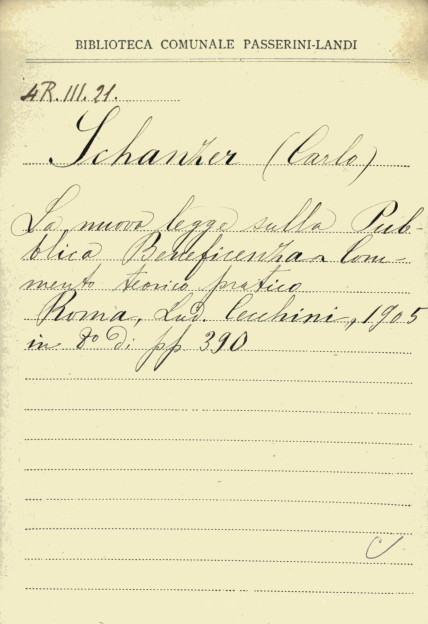 BIBLIOTECA COMUNALE PASSERINI-LANDI
4R.III.21.
Schanzer (Carlo)
La nuova legge sulla Pub-
blica Beneficenza Com-
mento teorico pratico
Roma, Lud. Cecchini, 1905
in 8º di pp 390